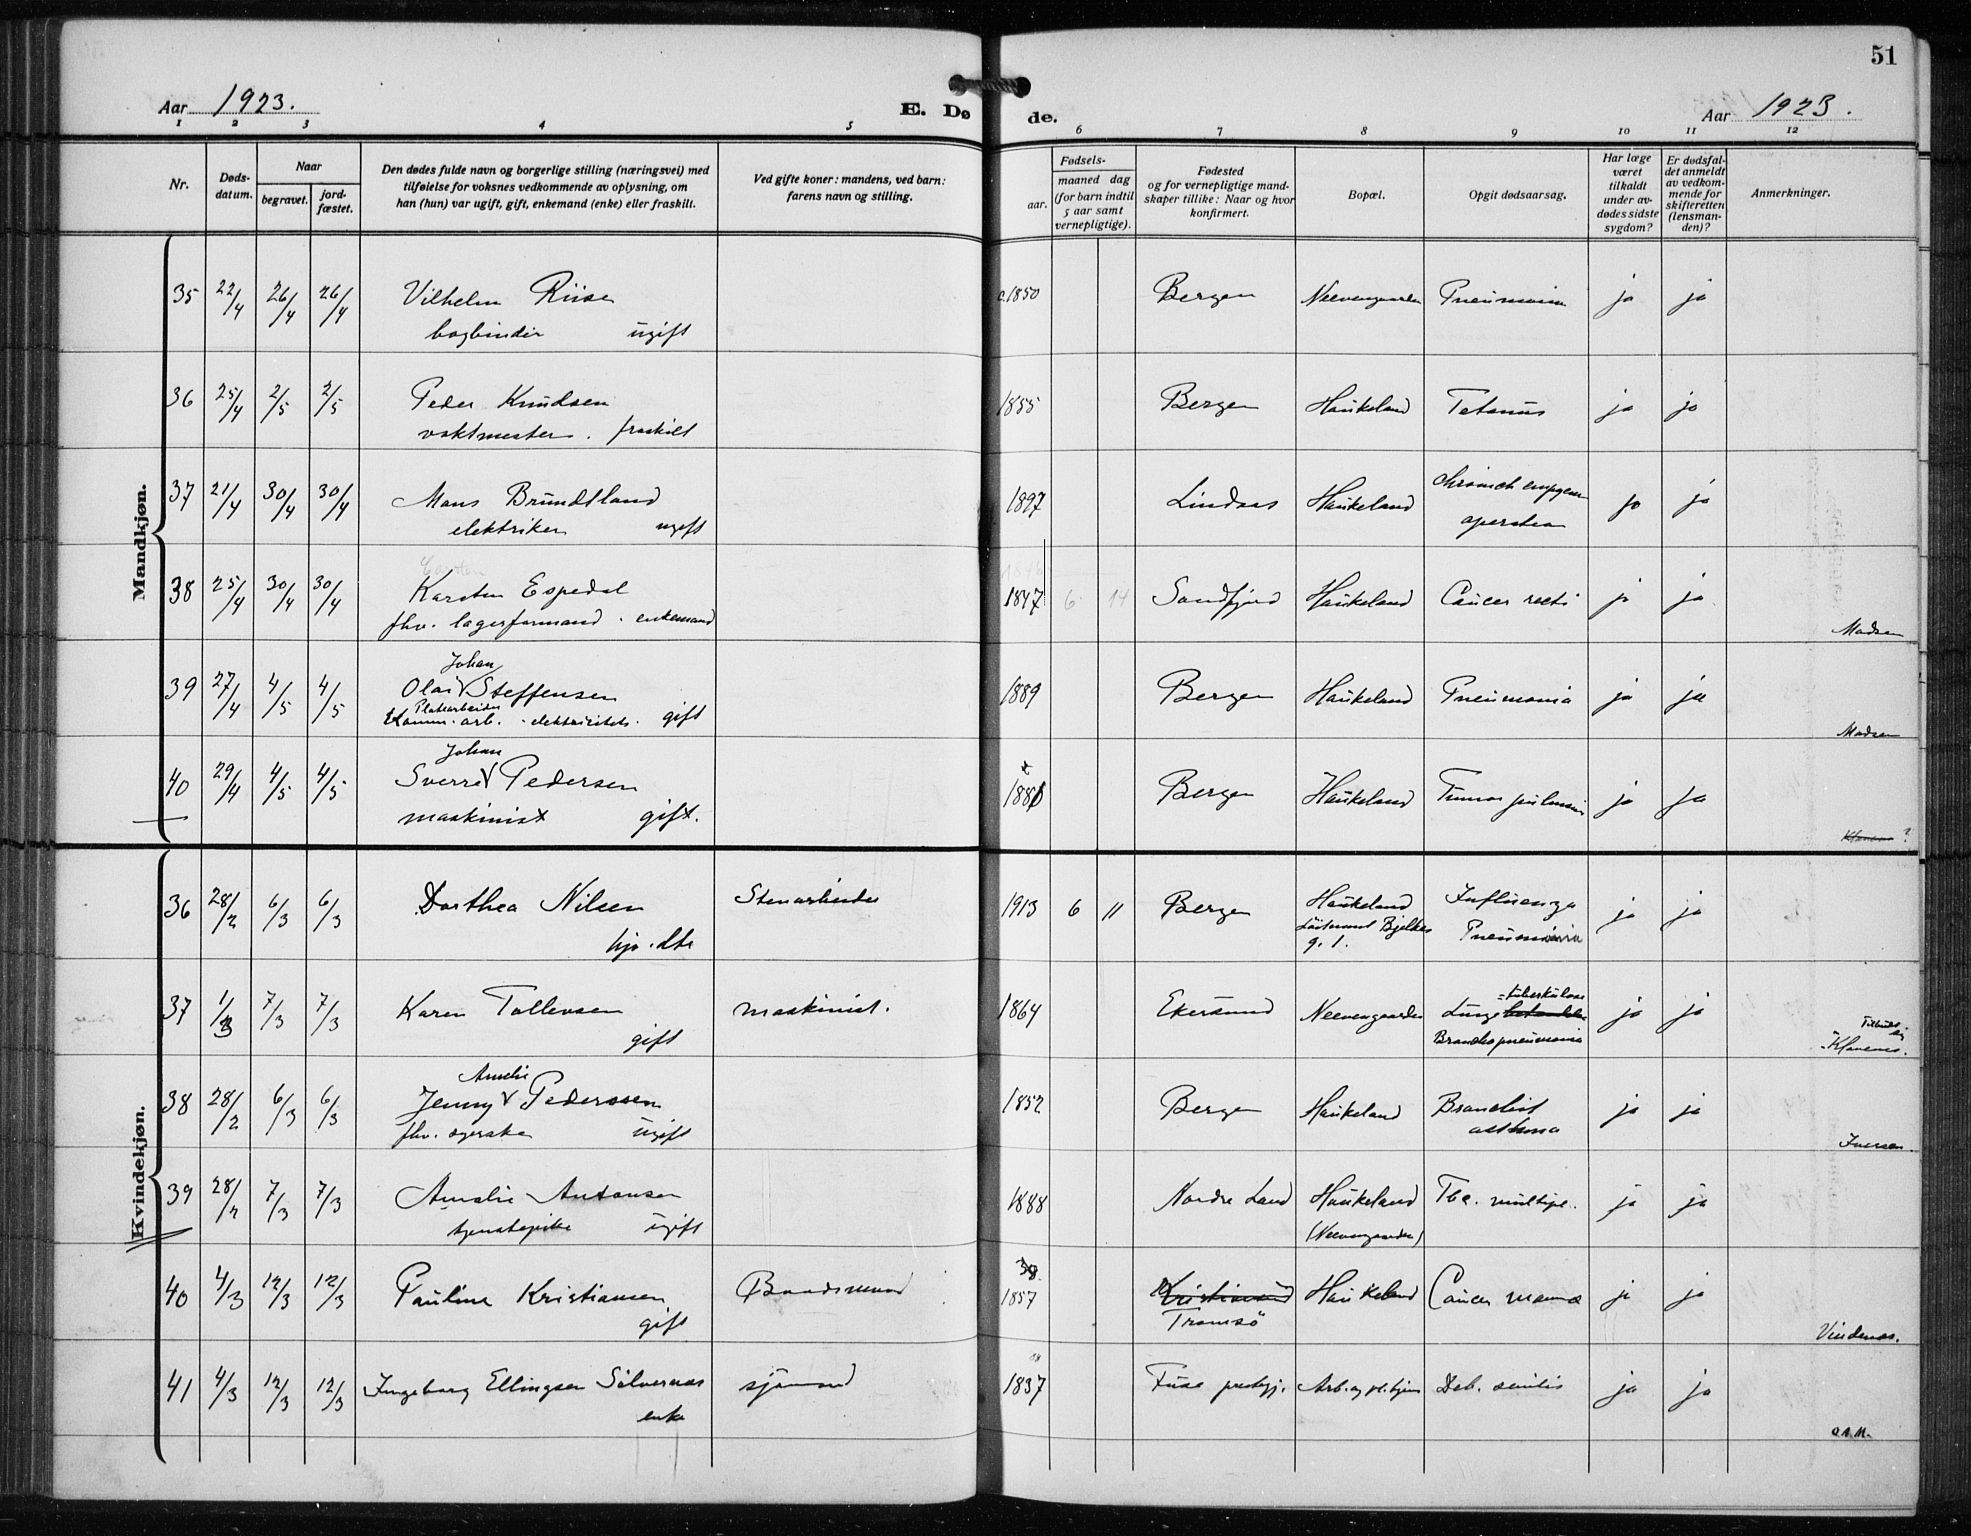 51
Aar 1923.
E. Dø
de.
Aar 1923.
1 2 3 4 5 6 7 8 9 10 11 12
Nr.
Døds-
datum.
Naar
begravet.
jord-
fæstet.
Den dødes fulde navn og borgerlige stilling (næringsvei) med
tilføielse for voksnes vedkommende av oplysning, om
han (hun) var ugift, gift, enkemand (enke) eller fraskilt.
Ved gifte koner: mandens, ved barn:
farens navn og stilling.
Fødsels-
aar.
maaned dag
(for barn indtil
5 aar samt
vernepligtige).
Fødested
og for vernepligtige mand-
skaper tillike: Naar og hvor
konfirmert.
Bopæl.
Opgit dødsaarsag.
Har læge
været
tilkaldt
under av-
dødes sidste
sygdom?
Er dødsfal-
det anmeldt
av vedkom-
mende for
skifteretten
(lensman-
den)?
Anmerkninger.
Mandkjøn.
35 22/4 26/4 26/4 Vilhelm Riise c.1850 Bergen Neevengaarden Pneumonia ja ja
bogbinder ugift
36 25/4 2/5 2/5 Peder Knudsen 1855 Bergen Haukeland Tetanus ja ja
vaktmester. fraskilt
37 21/4 30/4 30/4 Mons Brundtland 1897 Lindaas Haukeland chronisk empyem ja ja
elektriker ugift operation
Carsten
38 25/4 30/4 30/4 Karsten Espedal 1847 6 14 Sandfjord Haukeland Cancer recti ja ja
fhv. lagerformand. enkemand Madsen
Johan
39 27/4 4/5 4/5 Olai Steffensen 1889 Bergen Haukeland Pneumonia ja ja
Pladsarbeider
Komm. arb. - elektricitets. gift Madsen
Johan
40 29/4 4/5 4/5 Sverre Pedersen 1881 Bergen Haukeland Tumor pulmonis ja ja
maskinist gift. ?
Kvindekjøn.
36 28/2 6/3 6/3 Dorthea Nilsen Stenarbeider 1913 6 11 Bergen Haukeland Influenza ja ja
hjv. dtr Löitnant Bjelkes Pneumonia
g. 1.
37 1/3 7/3 7/3 Karen Tollevsen maskinist. 1864 Ekersund Neevengaarden Lunge tuberkulose ja ja
gift Bronchopneumonia Klovenes.
Amelie
38 28/2 6/3 6/3 Jenny Pederssen 1852 Bergen Haukeland Bronchit ja ja
fhv. syerske ugift asthma Iversen.
39 28/2 7/3 7/3 Amalie Antonsen 1888 Nordre Land Haukeland Tbc. multipl. ja ja
tjenestepike ugift (Neevengaarden)
38
40 4/3 12/3 12/3 Pauline Kristiansen Baadsmand 1857 Kristiansund Haukeland Cancer mamma ja ja
gift Tromsö Vindenes.
41 4/3 12/3 12/3 Ingeborg Ellingsen Sölvernes sjömand 1837 Fuse prestegj. Arb. og pl. hjem Deb. senilis ja ja
enke